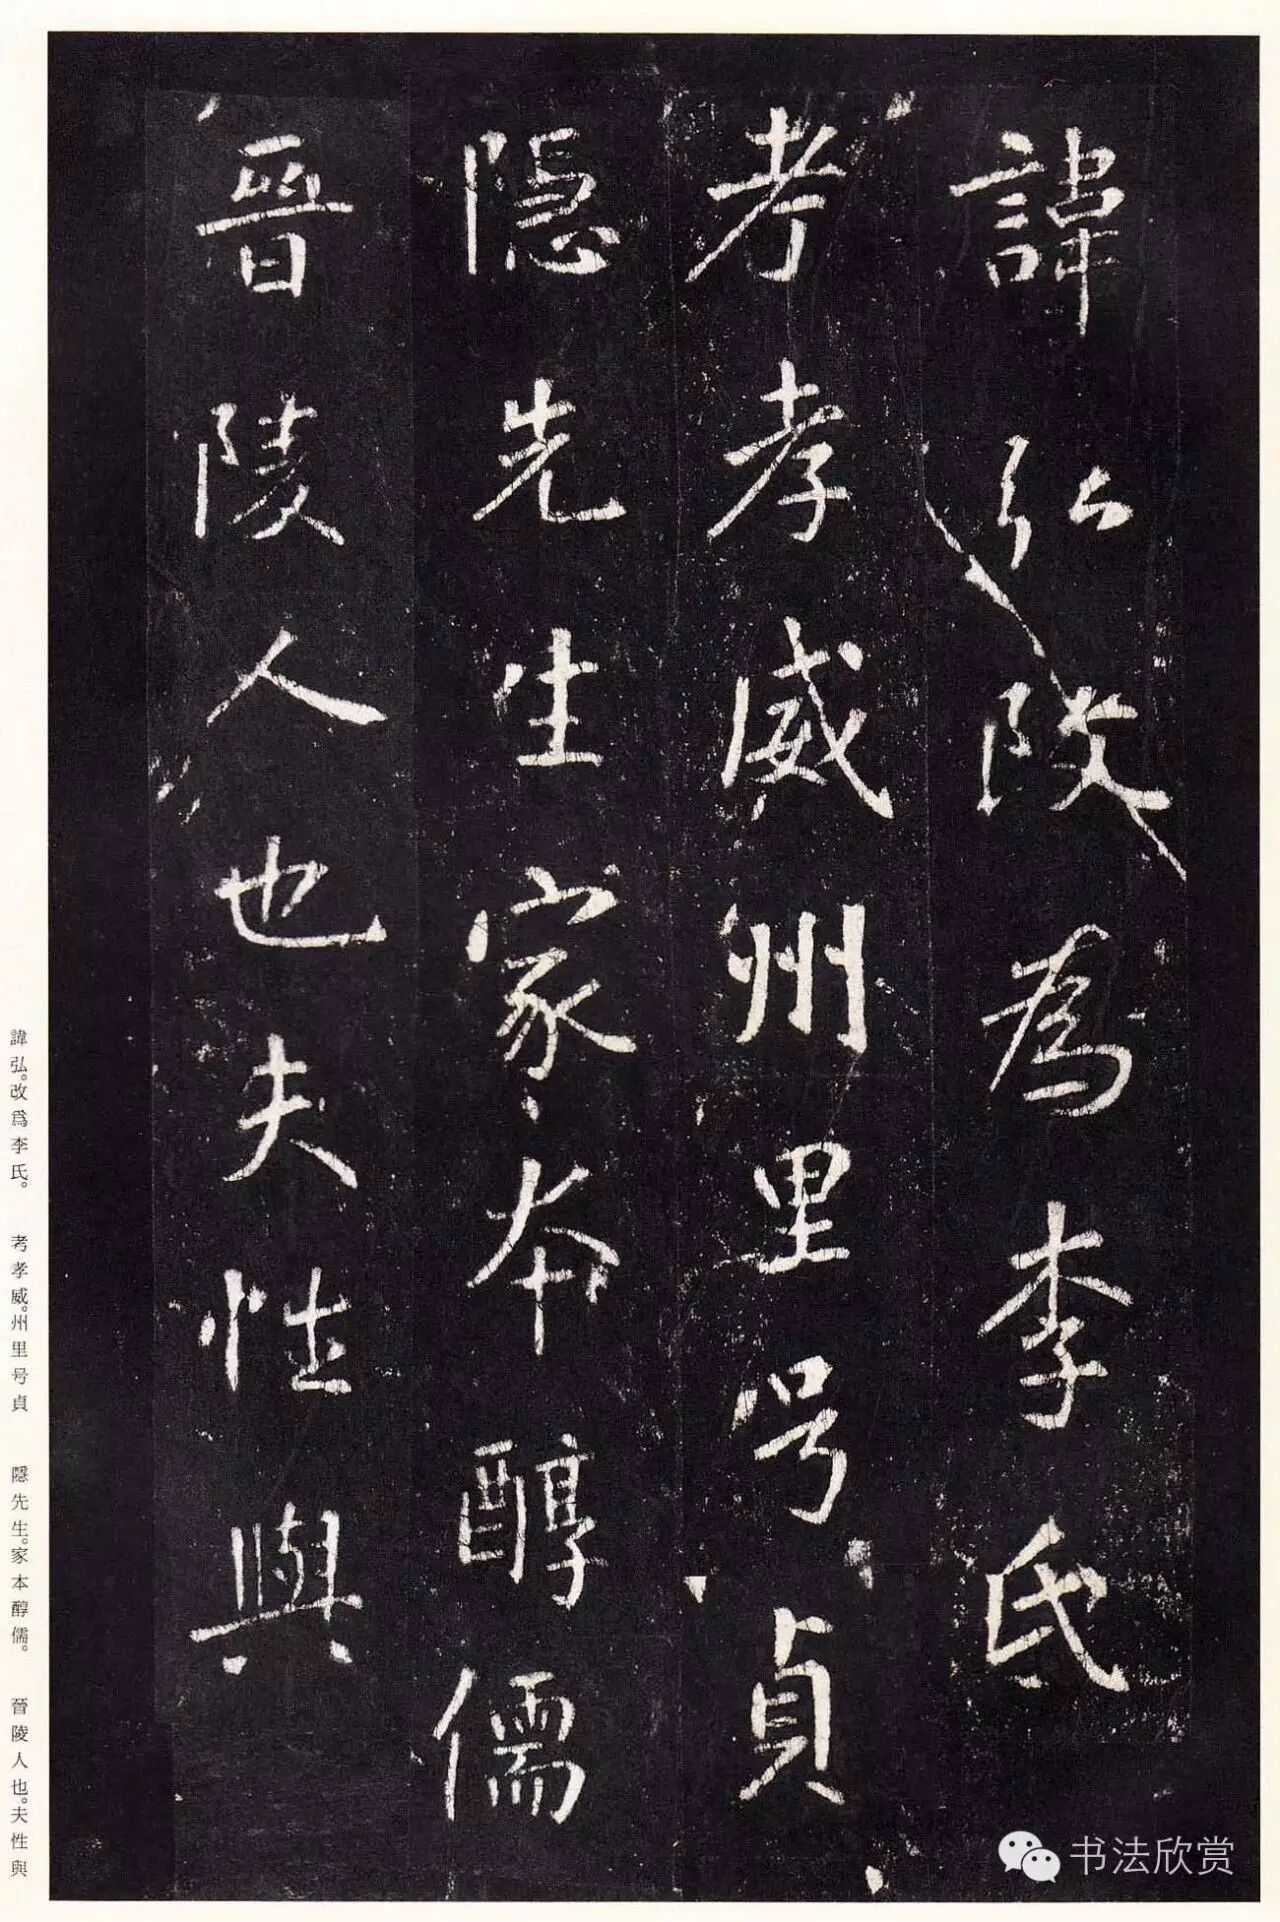 諱弘改為李氏
考孝威州里号貞
隱先生家本醇儒
晉陵人也夫性與
諱弘。改爲李氏。 考孝威。州里号貞 隱先生。家本醇儒。 晉陵人也。夫性與
书法欣赏